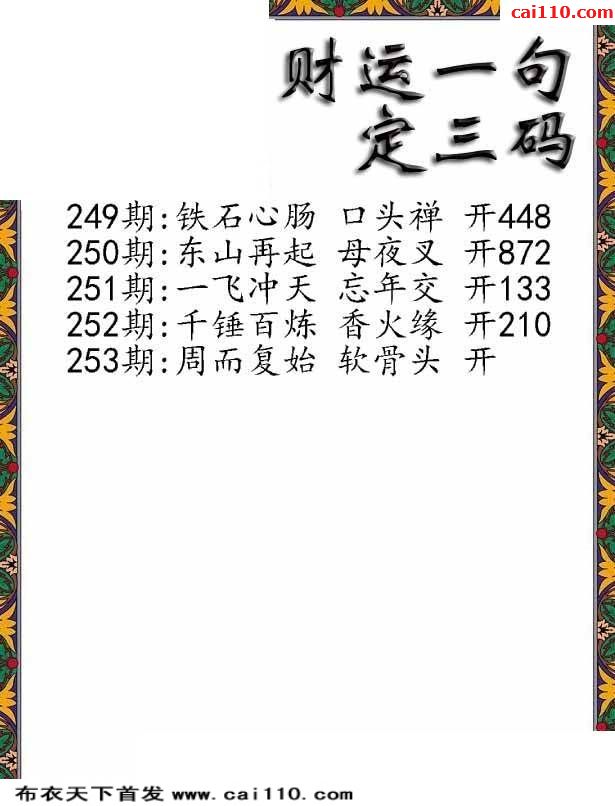 cai110.com
财运一句
定三码
249期:铁石心肠 口头禅 开448
250期:东山再起 母夜叉 开872
251期:一飞冲天 忘年交 开133
252期:千锤百炼 香火缘 开210
253期:周而复始 软骨头 开
布衣天下首发 www.cai110.com